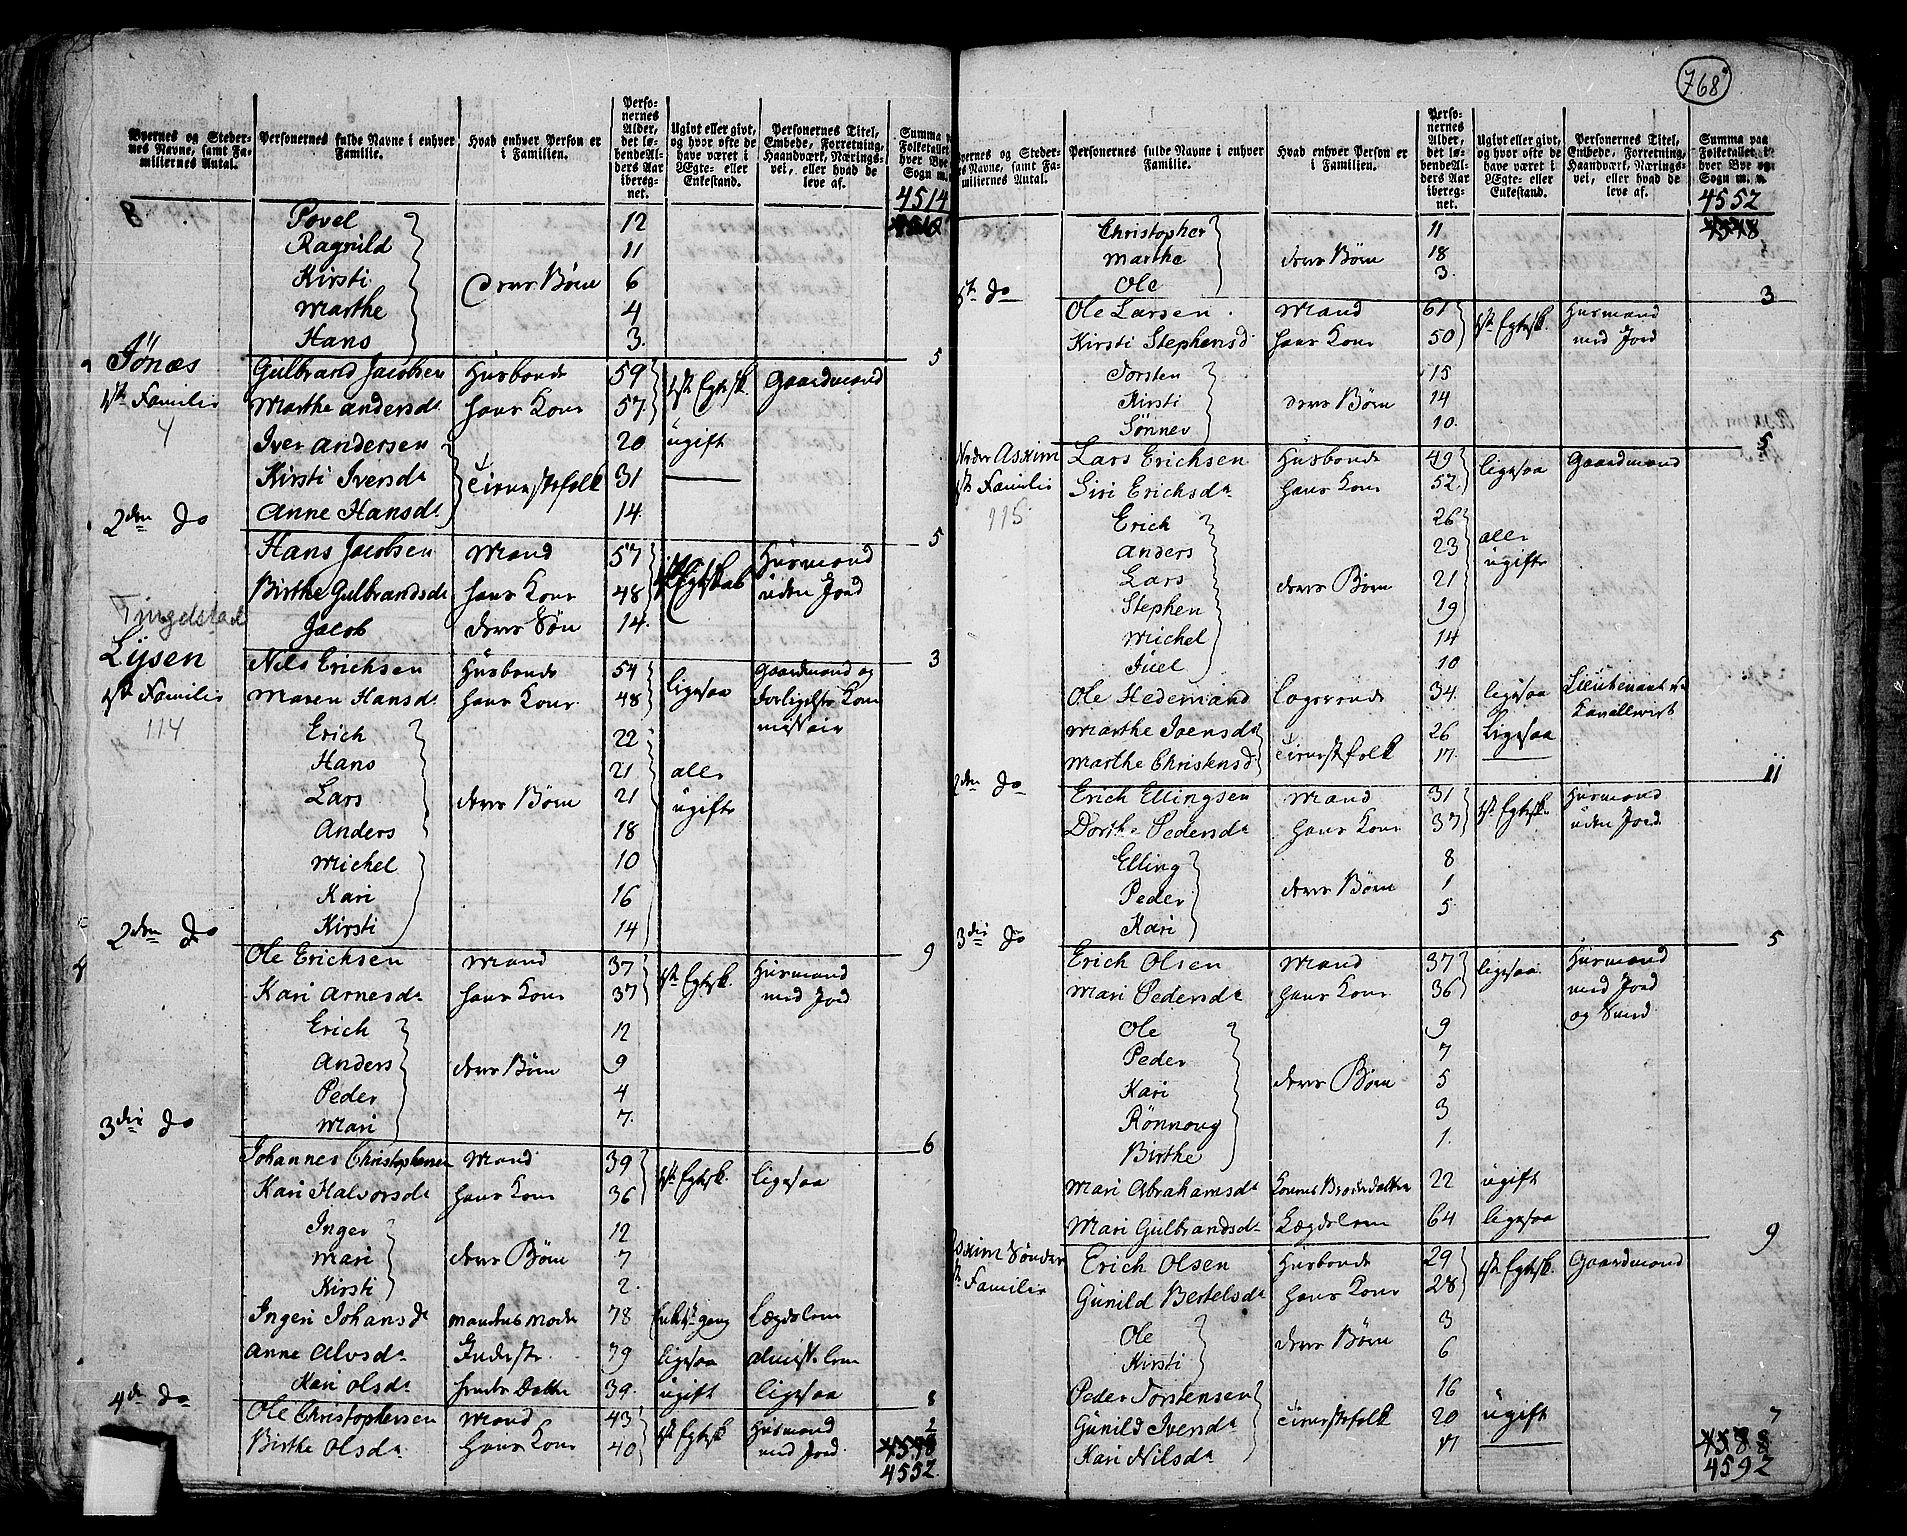 768
Byernes og Steder-
nes Navne, samt Fa-
miliernes Antal.
Personernes fulde Navne i enhver
Familie.
Hvad enhver Person er
i Familien.
Perso-
nernes
Alder,
det lø-
bende Al-
ders Aar
iberegnet.
Ugivt eller givt,
og hvor ofte de
have været i
Ægte- eller
Enkestand.
Personernes Titel,
Embede, Forretning,
Haandværk, Nærings-
vei, eller hvad de
leve af.
Summa
Folketallet
hver Bye
Sogn m.
4514
8 Povel 12
Ragnild 11
Kirsti deres Børn 6
Marthe 4
Hans 3
5
Jønæs Gulbrand Jacobsen Husbonde 59 1ste Egtesk. Gaardmand
1ste Familie Marthe Andersda hans Kone 57
4 Iver Andersen 20 ugift
Kirsti Iversda Tienestefolk 31
Anne Hansda 14
5
2den do Hans Jacobsen Mand 57 1ste Egteskab Huusmand
Birthe Gulbrandsda hans Kone 48 uden Jord
Tingelstad Jacob deres Søn 14
3
Lysen Nils Erichsen Husbonde 54 ligesaa Gaardmand og
1ste Familie Maren Hansda hans Kone 48 Forligelses Kom
114 missair
Erich 22
Hans 21 alle
Lars deres Børn 21 ugifte
Anders 18
Michel 10
Kari 16
Kirsti 14
9
2den do Ole Erichsen Mand 37 1ste Egtesk. Huusmand
Kari Arnesda hans Kone 37 med Jord
Erich 12
Anders deres Børn 9
Peder 4
Mari 7
6
3die do Johannes Christophersen Mand 39 1ste Egtesk. ligesaa
Kari Halvorsda hans Kone 36
Inger 12
Mari deres Børn 7
Kirsti 2
Ingeri Johansda Mandens Moder 78 Enke 1ste gang Lægdslem
Anne Alvsda Inderste 79 ligesaa
Kari Olsda hendes Datter 39 ugift ligesaa
8
4de do Ole Christophersen Mand 43 1ste Egtesk Huusmand
Birthe Olsda hans Kone 40 med Jord
2
4552
Byernes og Steder-
nes Navne, samt Fa-
miliernes Antal.
Personernes fulde Navne i enhver
Familie.
Hvad enhver Person er
i Familien.
Perso-
nernes
Alder,
det lø-
bende Al-
ders Aar
iberegnet.
Ugivt eller givt,
og hvor ofte de
have været i
Ægte- eller
Enkestand.
Personernes Titel,
Embede, Forretning,
Haandværk, Nærings-
vei, eller hvad de
leve af.
Summa paa
Folketallet i
hver Bye og
Sogn m. v.
4552
Christopher 11
Marthe deres Børn 18
Ole 3
3
5te do Ole Larsen Mand 61 1ste Egtesk. Huusmand
Kirsti Stephensd hans Kone 50 med Jord
Torsten 15
Kirsti deres Børn 14
Sønnev 10
5
Neder Asxim Lars Erichsen Husbonde 49 ligesaa Gaardmand
1ste Familie Siri Erichsda hans Kone 52
115
Erich 26
Anders 23 alle
Lars deres Børn 21 ugifte
Stephen 19
Michel 14
Juel 10
Ole Hedemand Logerende 34 ligesaa Lieutenant
Marthe Joensda 26 Ligesaa
Marthe Christensd Tienestfolk 17
11
2den do Erich Ellingsen Mand 31 1ste Egtesk. Huusmand
Dorthe Pedersda hans Kone 37 uden Jord
Elling 8
Peder deres Børn 1
Kari 5
5
3die do Erich Olsen Mand 37 ligesaa Huusmand
Mari Pedersda hans Kone 36 med Jord
og Smed
Ole 9
Peder 7
Kari deres Børn 5
Rønnoug 3
Birthe 1
Mari Abrahamsda Konens Broderdatter 22 ugift
Mari Gulbrandsda Lægdslem 64 ligesaa
9
Asxim Søndre Erich Olsen Husbonde 29 1ste Egtesk. Gaardmand
1ste Familie Gunild Bertelsda hans Kone 28
Ole 3
Kirsti deres Børn 6
Peder Torstensen 16
Gunild Iversda Tienestefolk 20 ugift
Kari Nilsda 17
7
4592